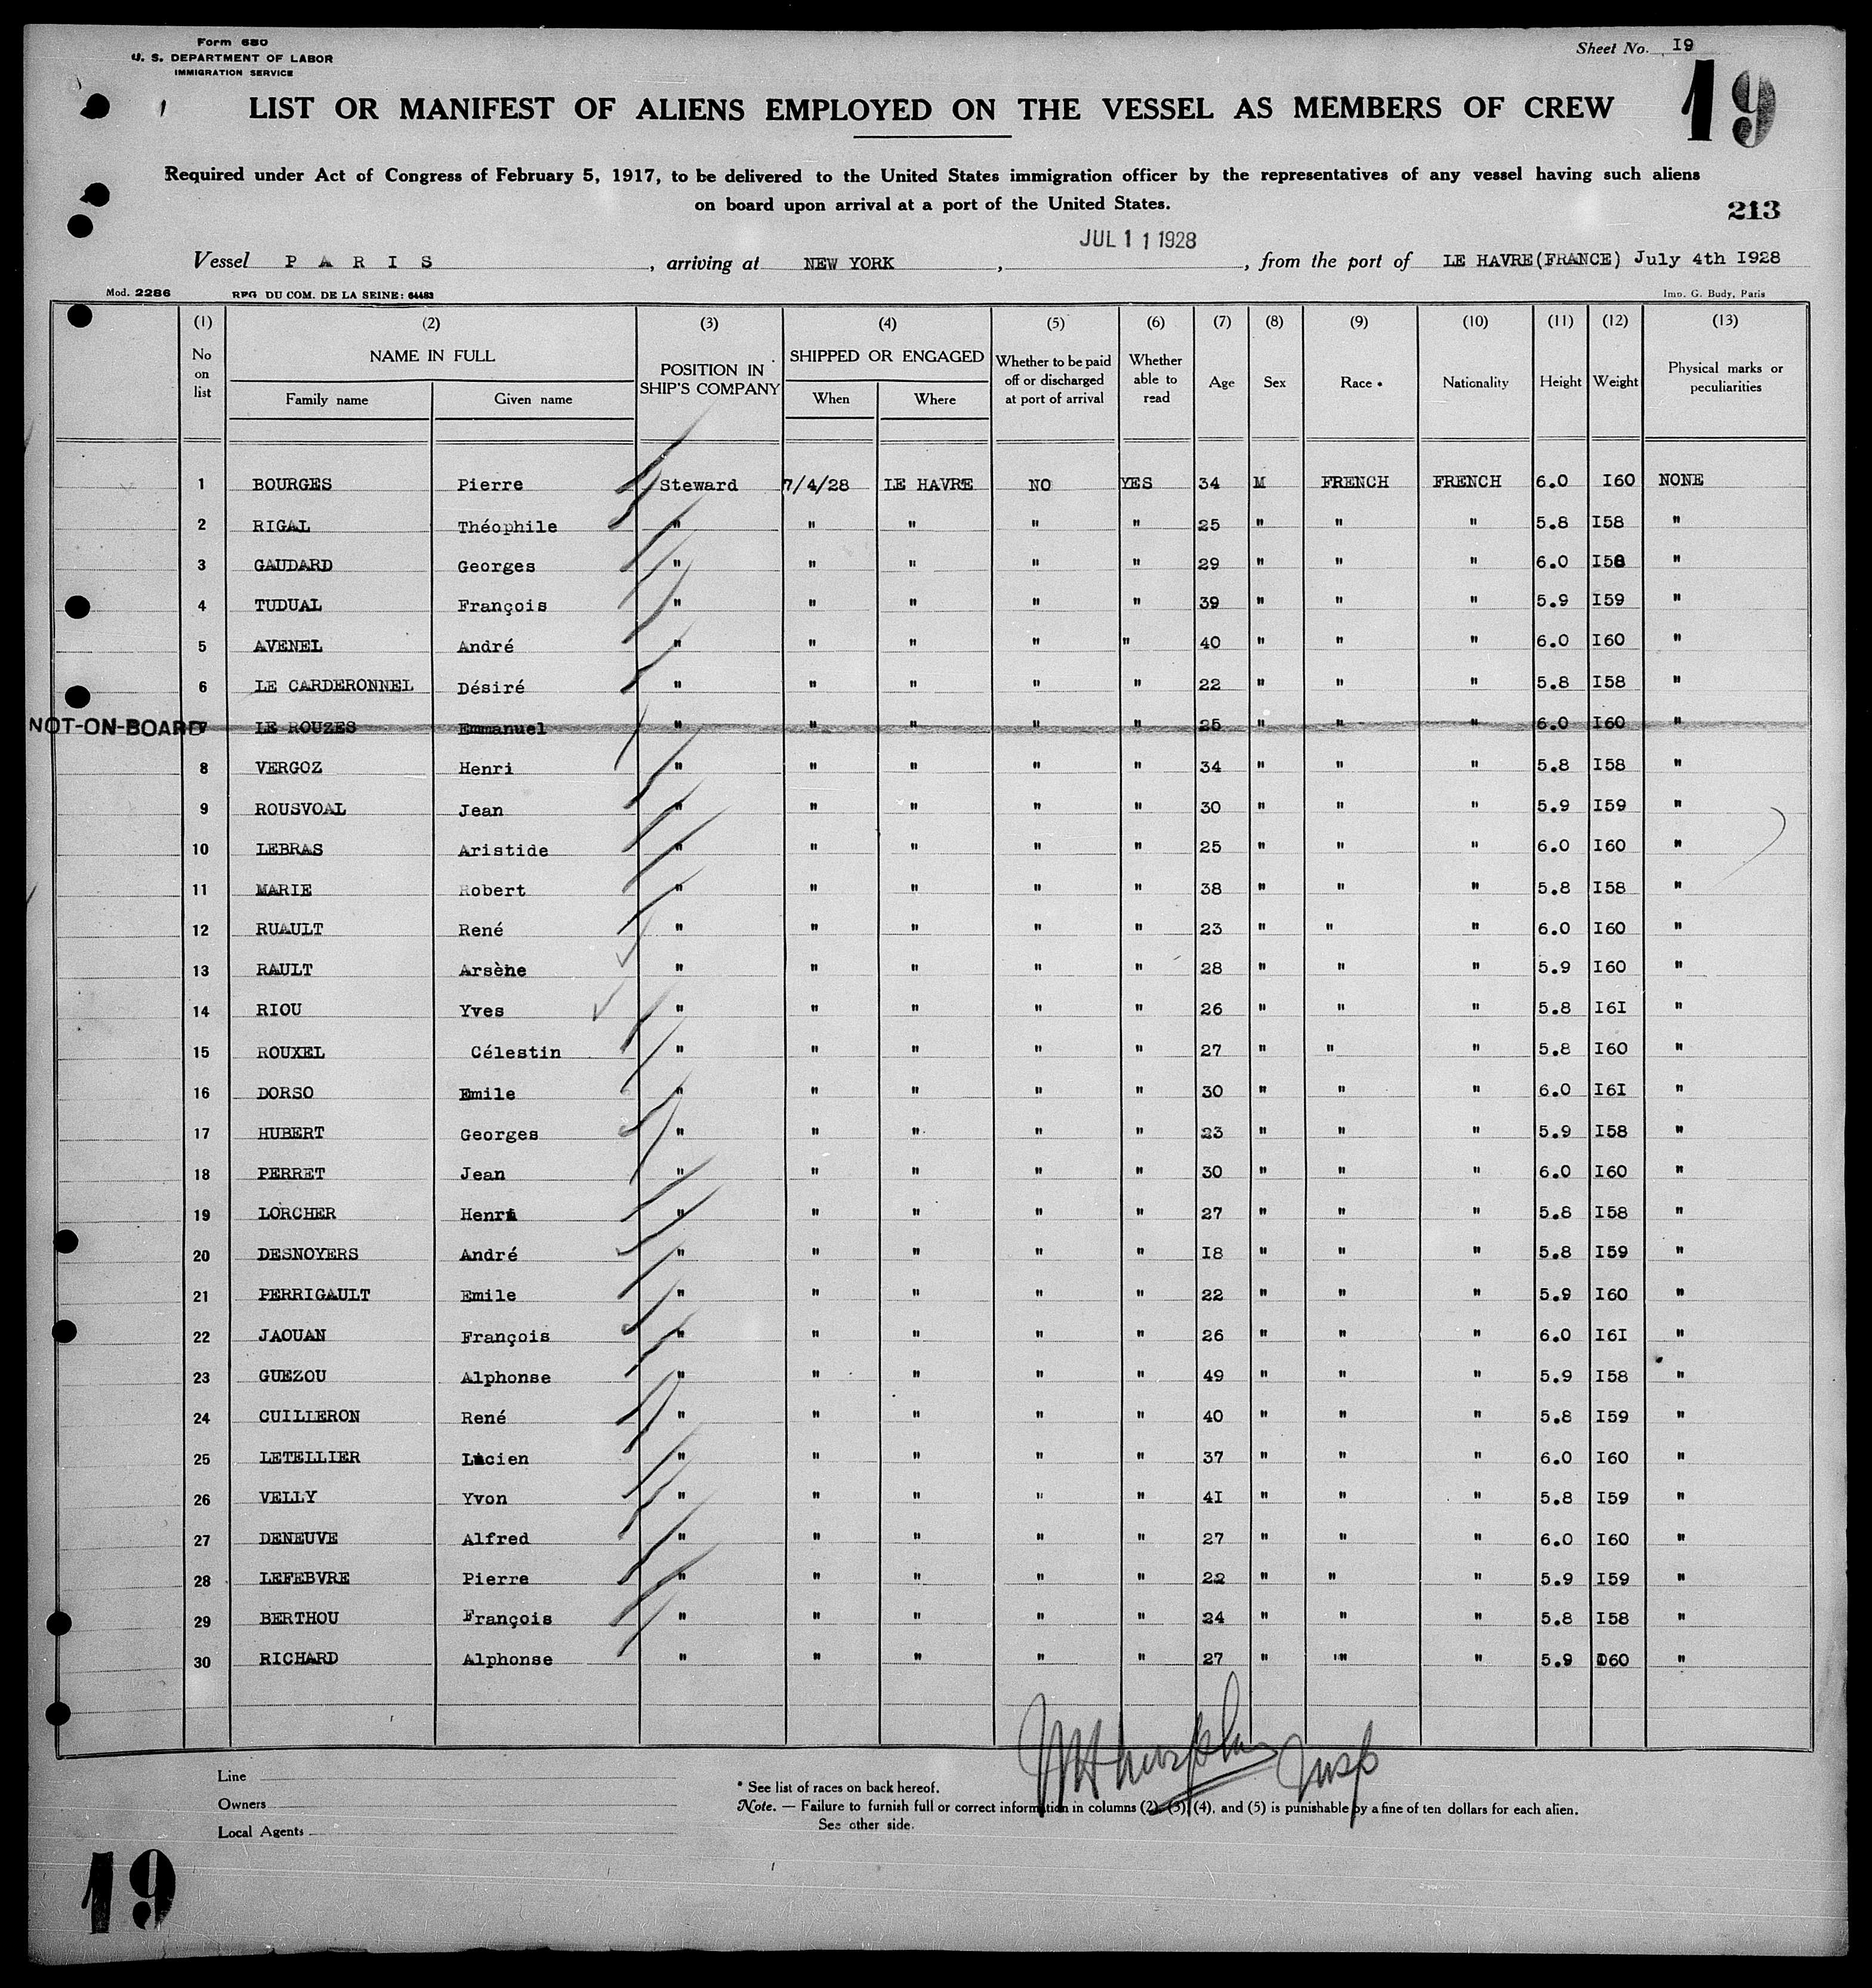 Form 680
U. S. DEPARTMENT OF LABOR
IMMIGRATION SERVICE
Sheet No. I9
19
LIST OR MANIFEST OF ALIENS EMPLOYED ON THE VESSEL AS MEMBERS OF CREW
Required under Act of Congress of February 5, 1917, to be delivered to the United States immigration officer by the representatives of any vessel having such aliens
on board upon arrival at a port of the United States.
213
JUL 1 1 1928
Vessel P A R I S, arriving at NEW YORK, , from the port of LE HAVRE(FRANCE) July 4th I928
Mod. 2286 RPG DU COM. DE LA SEINE: 64483 Imp. G. Budy, Paris
(1) (2) (3) (4) (5) (6) (7) (8) (9) (10) (11) (12) (13)
No on list NAME IN FULL POSITION IN SHIP'S COMPANY SHIPPED OR ENGAGED Whether to be paid off or discharged at port of arrival Whether able to read Age Sex Race * Nationality Height Weight Physical marks or peculiarities
Family name Given name When Where
1 BOURGES Pierre Steward 7/4/28 LE HAVRE NO YES 34 M FRENCH FRENCH 6.0 I60 NONE
2 RIGAL Théophile " " " " " 25 " " " 5.8 I58 "
3 GAUDARD Georges " " " " " 29 " " " 6.0 I58 "
4 TUDUAL François " " " " " 39 " " " 5.9 I59 "
5 AVENEL André " " " " " 40 " " " 6.0 I60 "
6 LE CARDERONNEL Désiré " " " " " 22 " " " 5.8 I58 "
NOT-ON-BOARD 7 LE ROUZES Emmanuel " " " " " 25 " " " 6.0 I60 "
8 VERGOZ Henri " " " " " 34 " " " 5.8 I58 "
9 ROUSVOAL Jean " " " " " 30 " " " 5.9 I59 "
10 LEBRAS Aristide " " " " " 25 " " " 6.0 I60 "
11 MARIE Robert " " " " " 38 " " " 5.8 I58 "
12 RUAULT René " " " " " 23 " " " 6.0 I60 "
13 RAULT Arsène " " " " " 28 " " " 5.9 I60 "
14 RIOU Yves " " " " " 26 " " " 5.8 I6I "
15 ROUXEL Célestin " " " " " 27 " " " 5.8 I60 "
16 DORSO Emile " " " " " 30 " " " 6.0 I6I "
17 HUBERT Georges " " " " " 23 " " " 5.9 I58 "
18 PERRET Jean " " " " " 30 " " " 6.0 I60 "
19 LORCHER Henri " " " " " 27 " " " 5.8 I58 "
20 DESNOYERS André " " " " " I8 " " " 5.8 I59 "
21 PERRIGAULT Emile " " " " " 22 " " " 5.9 I60 "
22 JAOUAN François " " " " " 26 " " " 6.0 I6I "
23 GUEZOU Alphonse " " " " " 49 " " " 5.9 I58 "
24 CUILLERON René " " " " " 40 " " " 5.8 I59 "
25 LETELLIER Lucien " " " " " 37 " " " 6.0 I60 "
26 VELLY Yvon " " " " " 4I " " " 5.8 I59 "
27 DENEUVE Alfred " " " " " 27 " " " 6.0 I60 "
28 LEFEBVRE Pierre " " " " " 22 " " " 5.9 I59 "
29 BERTHOU François " " " " " 24 " " " 5.8 I58 "
30 RICHARD Alphonse " " " " " 27 " " " 5.9 I60 "
Insp
Line
Owners
Local Agents
* See list of races on back hereof.
Note. — Failure to furnish full or correct information in columns (2), (3), (4), and (5) is punishable by a fine of ten dollars for each alien.
See other side.
19